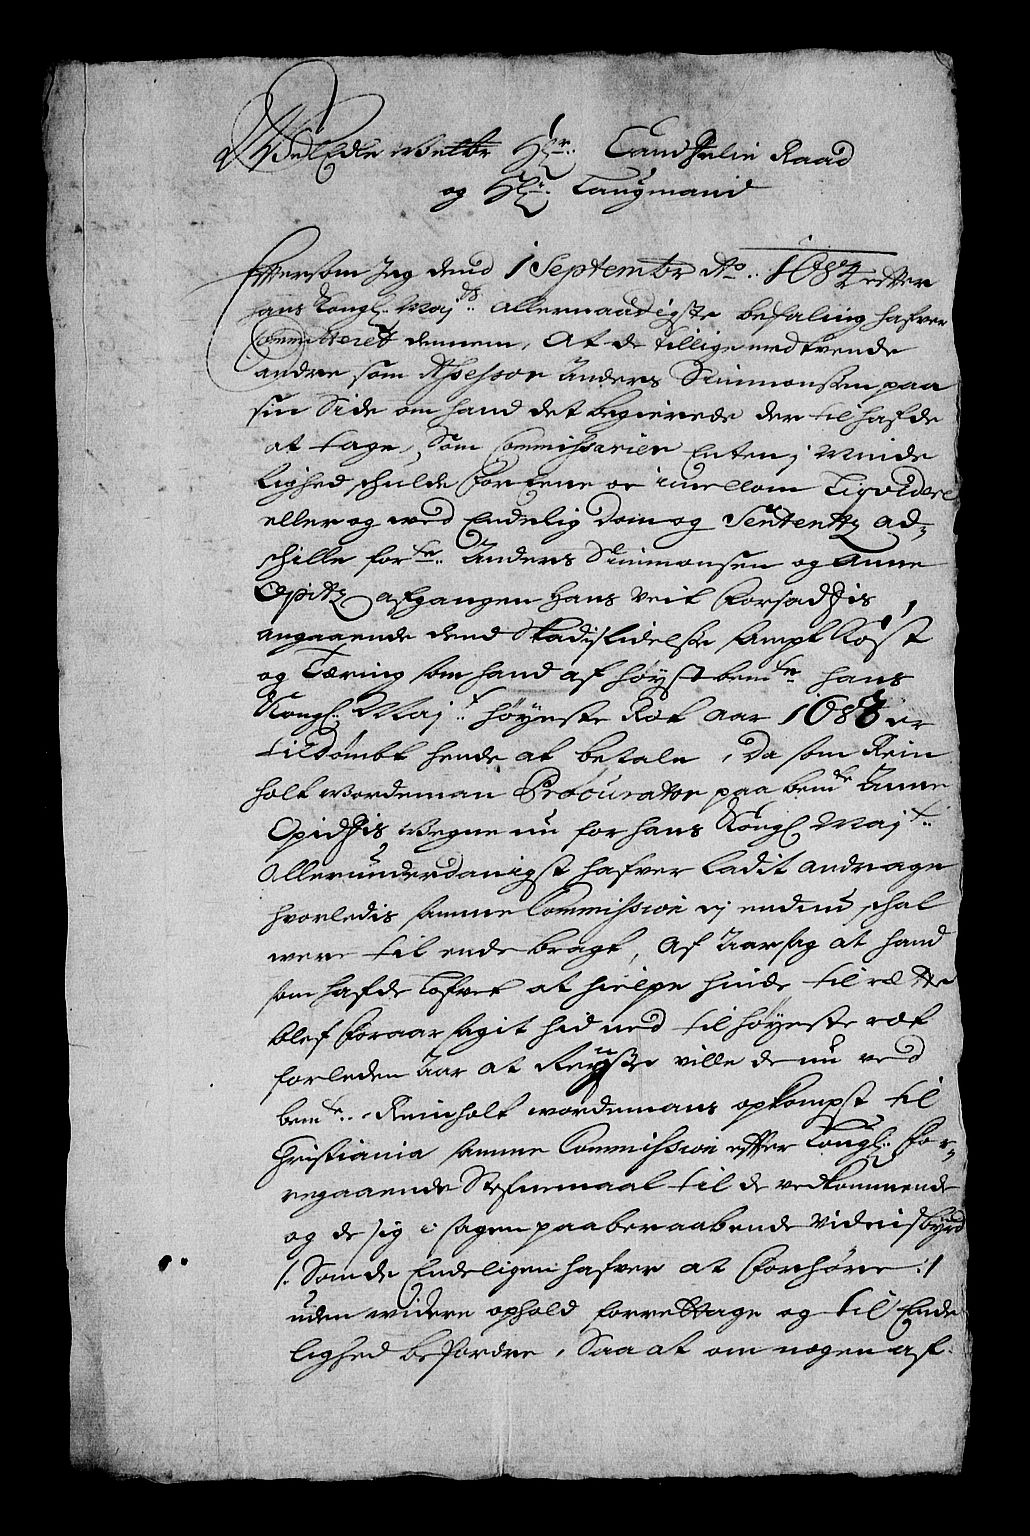 WelEdle Welbr Hr: Candselie Raad
og Hr: Laugmand
Eftersom Jeg dend 1 Septembr Ao: 1684 efter
hans Kongl: May ts: allernaadigste befaling hafver
Committeret dennem, At de tillige med tvende
andre som Assessor Anders Simmonsen paa
sin Side om hand det begierede der til hafde
at tage, Som Commissarier Enten j Minde
lighed schulde forEene os imellom Liqvidere
eller og wed Endelig Dom og Sententz ad¬
schille forne: Anders Simmonsen og Anne
Opitz afgangen Hans Veit Forsads
angaaende dend Skadislidelsse sampt Kost
og Tæring som hand af høystbemte hans
Kongl: Mayts: høyeste Ræt aar 1683 er
tildømbt hende at betale, Da som Rein
holt Wordeman Procurator paa bemde Anne
Opidsis wegne nu for hans Kongl May ts:
Allerunderdanigst hafver ladit andrage
hvorledis samme Commission ej endnu schal
were til ende bragt, Af Aarsag at hand
som hafde lofvet at hielpe hinde til rætte
blef foraarsagit hid ned til høyeste ræt
forleden Aar at Reysse ville de nu ved
bemte: Reinholt Wordemans opkompst til
Christiania samme Commission efter lougl: for¬
regaaende Stefnemaal til de vedkommende
og de sig i sagen paaberaabende Vidnisbyrd
/: Som de Endeligen hafver at forhøre :/
uden widere ophold forrettage og til Ende
lighed befordre, Saa at om nogen af